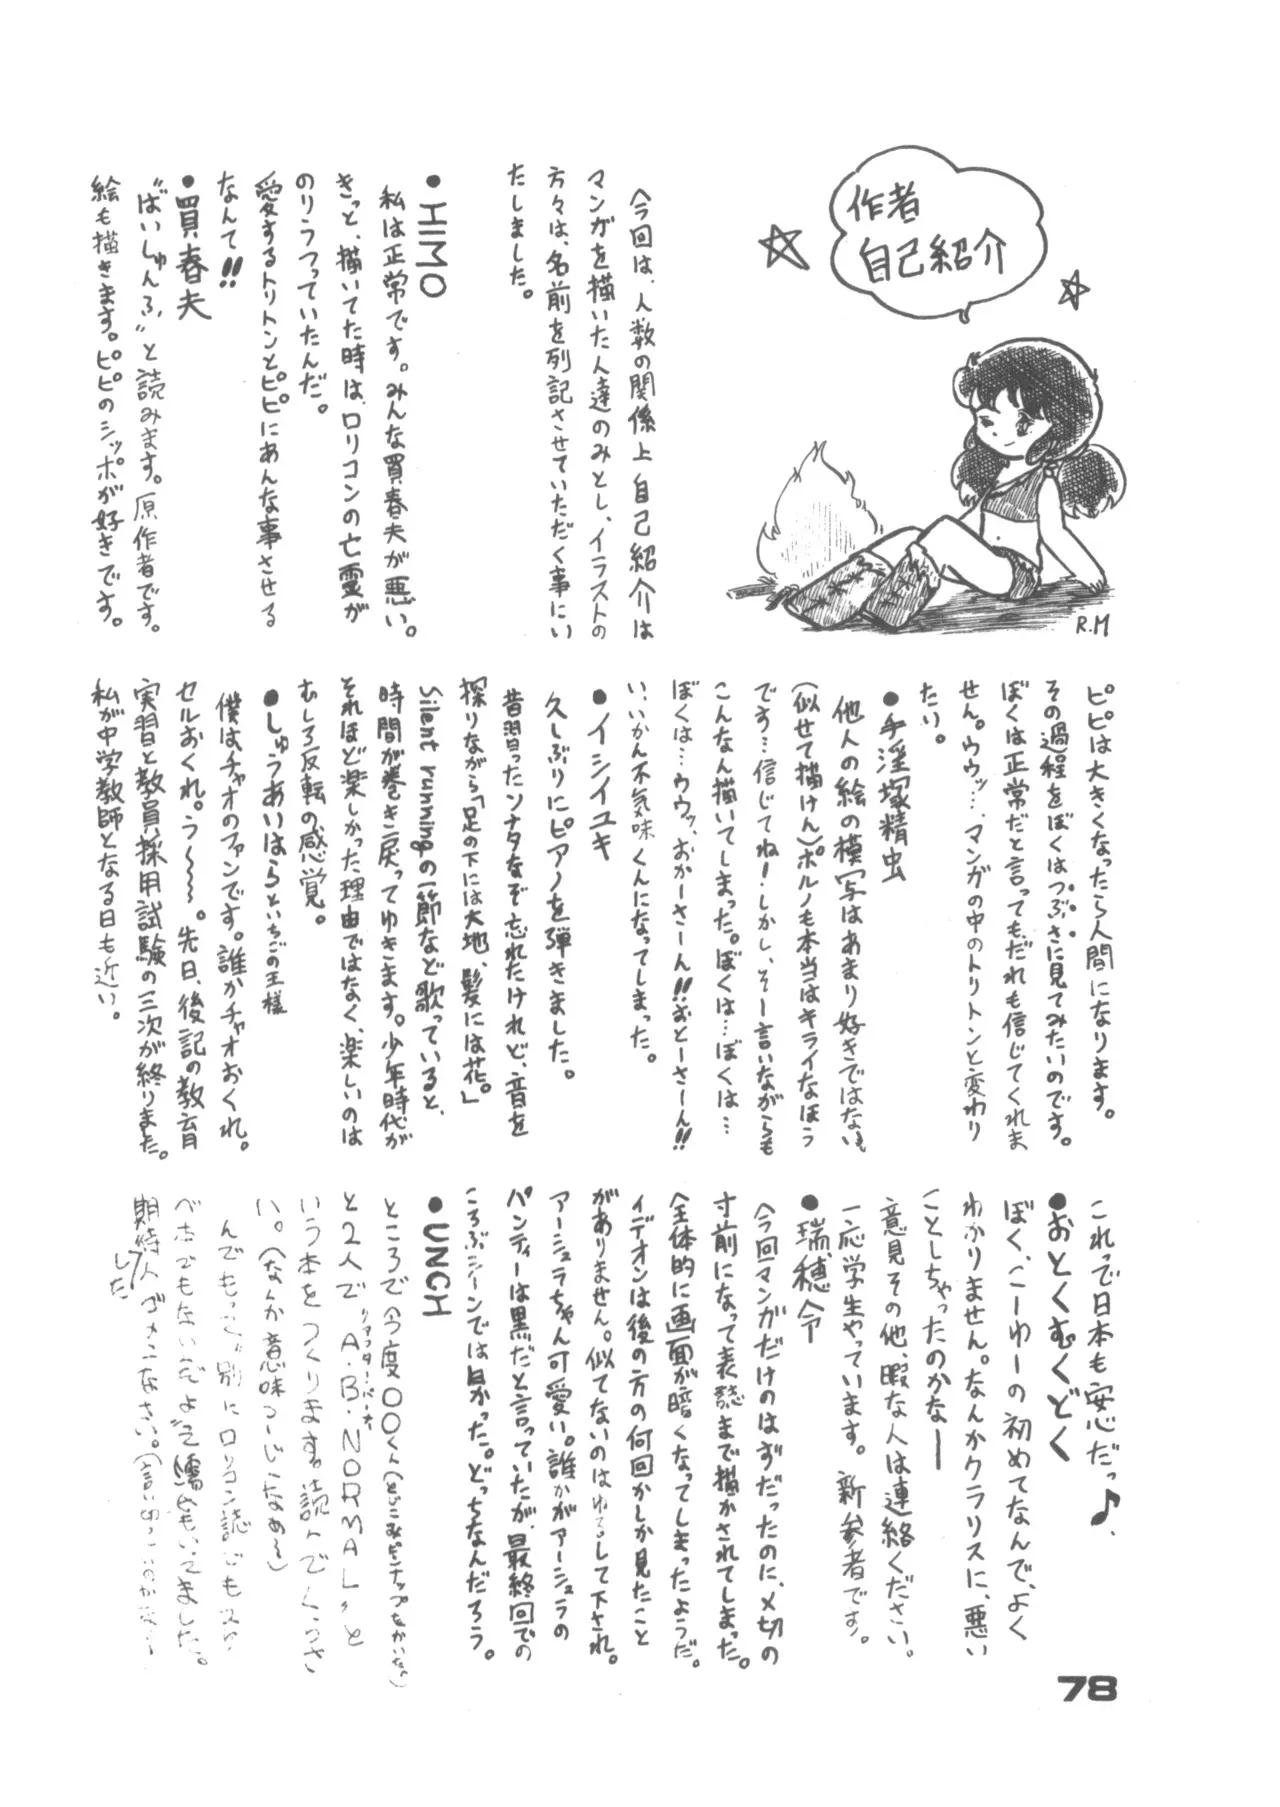 作者
自己紹介
今回は、人数の関係上自己紹介は
マンガを描いた人達のみとし、イラストの
方々は、名前を列記させていただく事にい
たしました。
●HIMO
私は正常です。みんな買春夫が悪い。
きっと、描いてた時は、ロリコンの亡霊が
のりうつっていたんだ。
愛するトリトンとピピにあんな事させる
なんて!!
●買春夫
"ばいしゅんふ"と読みます。原作者です。
絵も描きます。ピピのシッポが好きです。
R.M
ピピは大きくなったら人間になります。
その過程をぼくはつぶさに見てみたいのです。
ぼくは正常だと言ってもだれも信じてくれま
せん。ウウッ…、マンガの中のトリトンと変わり
たい。
●手淫塚精虫
他人の絵の模写はあまり好きではない
(似せて描けん)ポルノも本当はキライなほう
です…信じてね!しかし、そー言いながらも
こんなん描いてしまった。ぼくは…ぼくは…
ぼくは…ウウッ、おかーさーん!!おとーさーん!!
い、いかん不気味くんになってしまった。
●イシイユキ
久しぶりにピアノを弾きました。
昔習ったソナタなぞ忘れたけれど、音を
探りながら「足の下には大地、髪には花。」
Silent runningの一節など歌っていると、
時間が巻き戻ってゆきます。少年時代が
それほど楽しかった理由ではなく、楽しいのは
むしろ反転の感覚。
●しゅうあいはらといちごの王様
僕はチャオのファンです。誰かチャオおくれ。
セルおくれ。う～～～。先日、後記の教育
実習と教員採用試験の三次が終りました。
私が中学教師となる日も近い。
これで日本も安心だっ♪、
●おとくむくどく
ぼく、こーゆーの初めてなんで、よく
わかりません。なんかクラリスに、悪い
ことしちゃったのかなー
意見その他、暇な人は連絡ください。
一応学生やっています。新参者です。
●瑞穂令
今回マンガだけのはずだったのに、〆切の
寸前になって表誌まで描かされてしまった。
全体的に画面が暗くなってしまったようだ。
イデオンは後の方の何回かしか見たこと
がありません。似てないのはゆるして下され。
アーシュラちゃん可愛い。誰かがアーシュラの
パンティーは黒だと言っていたが、最終回での
ころぶシーンでは白かった。どっちなんだろう。
●UNCH
ところで今度○○くん(とじこみピンナップをかいた)
と2人で"A・B・NORMAL"と
いう本をつくります。読んでくださ
い。(なんか意味つーじなあ～)
んでもって、別にロリコン誌でも
べ本でもないんだよ
期待した人ゴメンなさい。
78